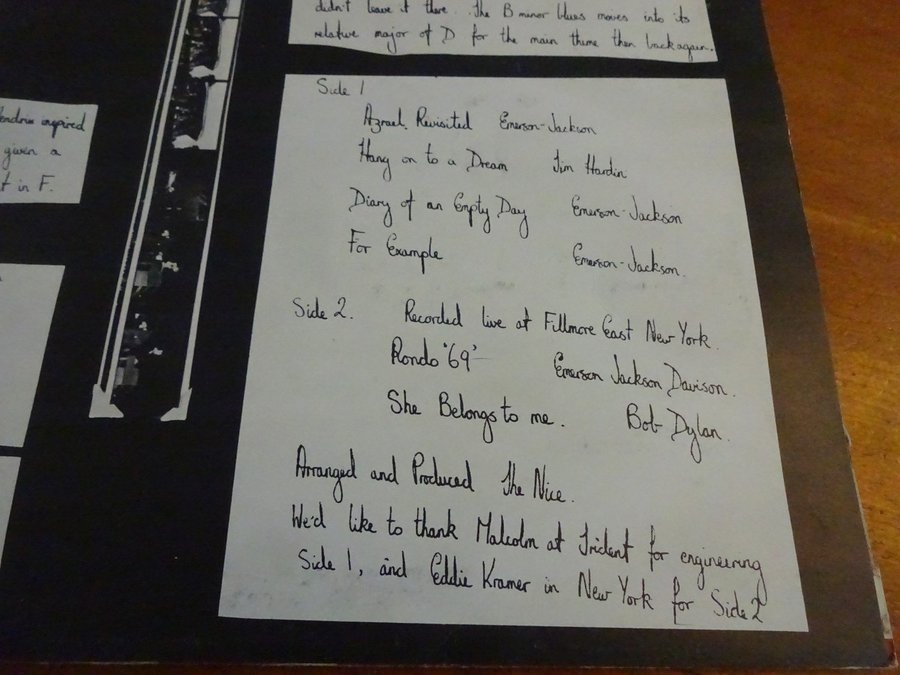 didn't leave it there. The B minor blues moves into its
relative major of D for the main theme then back again.
Hendrix inspired
given a
t in F.
Side 1
Azrael Revisited Emerson-Jackson
Hang on to a Dream Jim Hardin
Diary of an Empty Day Emerson-Jackson
For Example Emerson-Jackson.
Side 2. Recorded live at Fillmore East New York.
Rondo '69' Emerson Jackson Davison.
She Belongs to me. Bob Dylan.
Arranged and Produced The Nice.
We'd like to thank Malcolm at Trident for engineering
Side 1, and Eddie Kramer in New York for Side 2